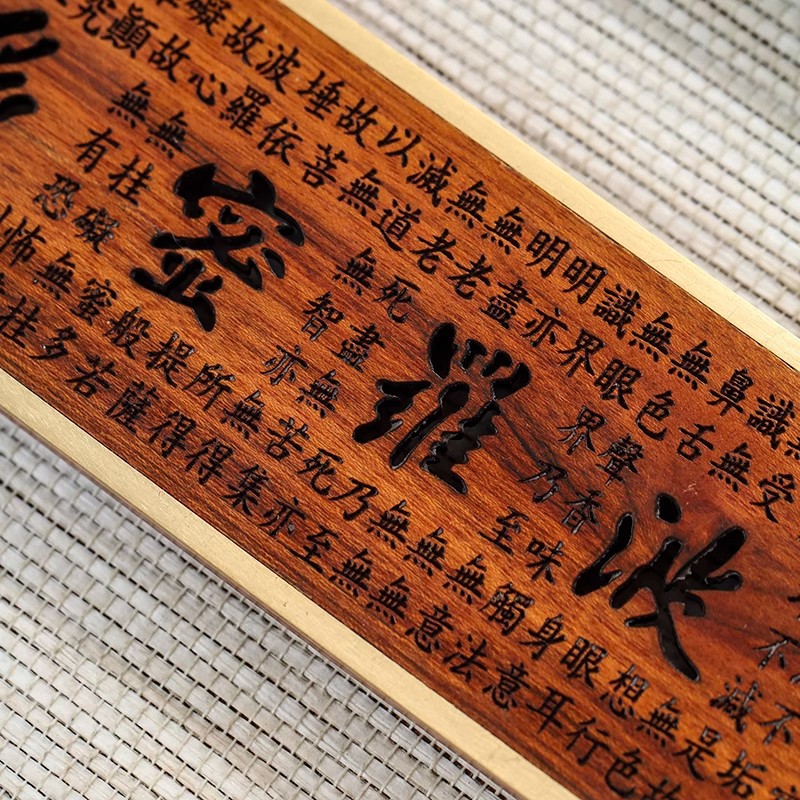 不垢
不減是故
無色
受想行
識無眼耳
鼻舌身意
無色聲香味觸法
無眼界乃至無意
識界無無
明亦無無
明盡乃至
無老死亦
無老死盡無苦集
滅道無智亦無得
以無所得
故菩提薩
埵依般若
波羅蜜多
故心無桂礙無桂
礙故無有恐怖
顛
究
波羅蜜